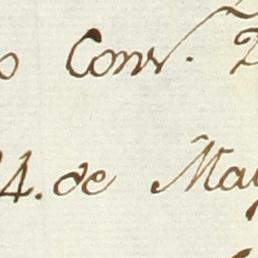 o Conv.
4. de May